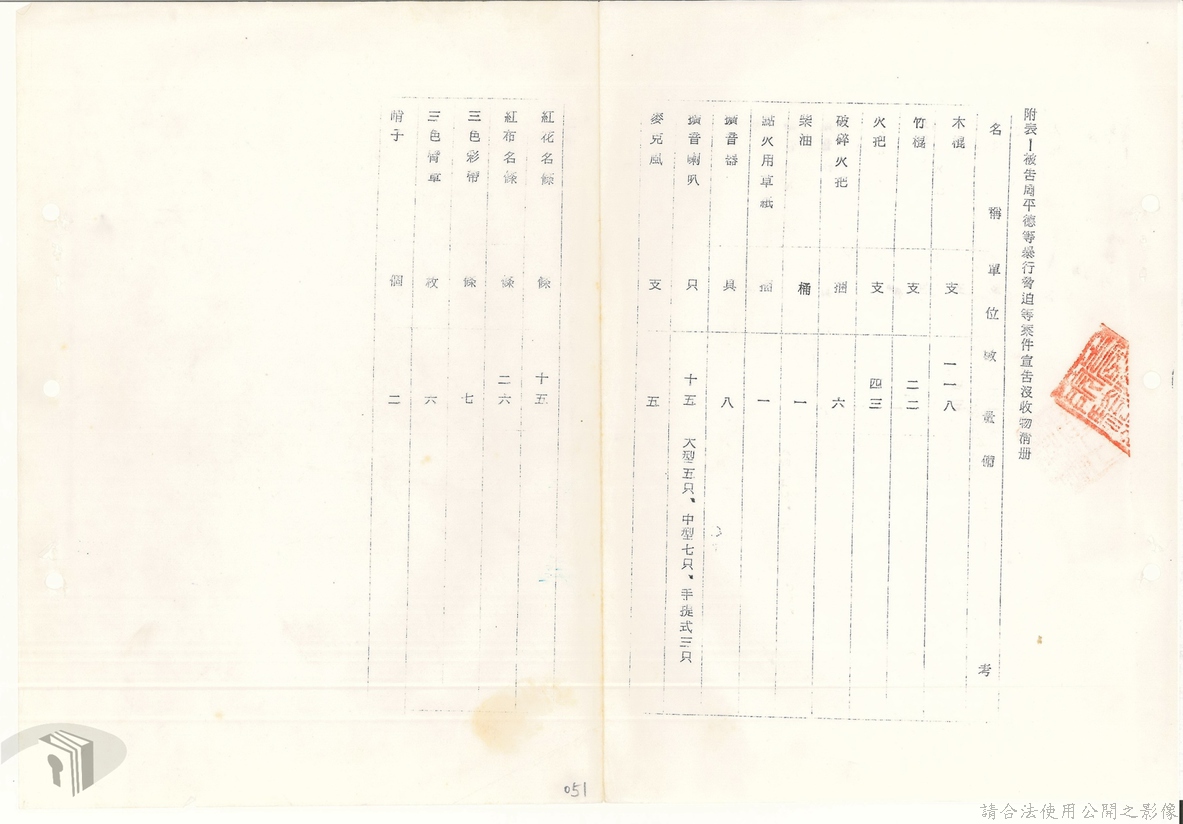 附表一被告周平德等暴行脅迫等案件宣告沒收物清册
名稱 單位 數量 備考
木棍 支 一一八
竹棍 支 二二
火把 支 四三
破碎火把 捆 六
柴油 桶 一
點火用草紙 捆 一
擴音器 具 八
擴音喇叭 只 十五 大型五只、中型七只、手提式三只
麥克風 支 五
紅花名條 條 十五
紅布名條 條 二六
三色彩帶 條 七
三色臂章 枚 六
帽子 個 二
051
請合法使用公開之影像